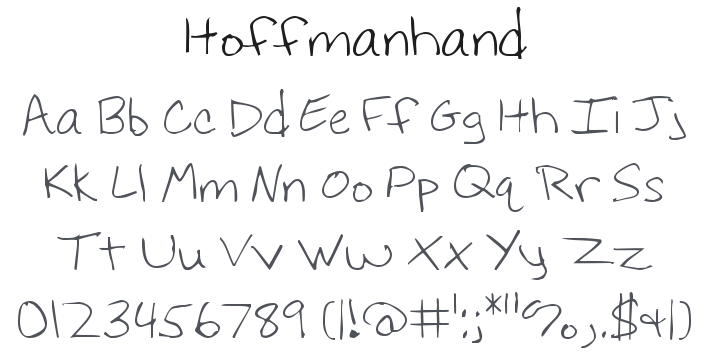 Hoffmanhand
Aa Bb Cc Dd Ee Ff Gg Hh Ii Jj
Kk Ll Mm Nn Oo Pp Qq Rr Ss
Tt Uu Vv Ww Xx Yy Zz
0123456789 (|!@#':;*"%o,.$&|)